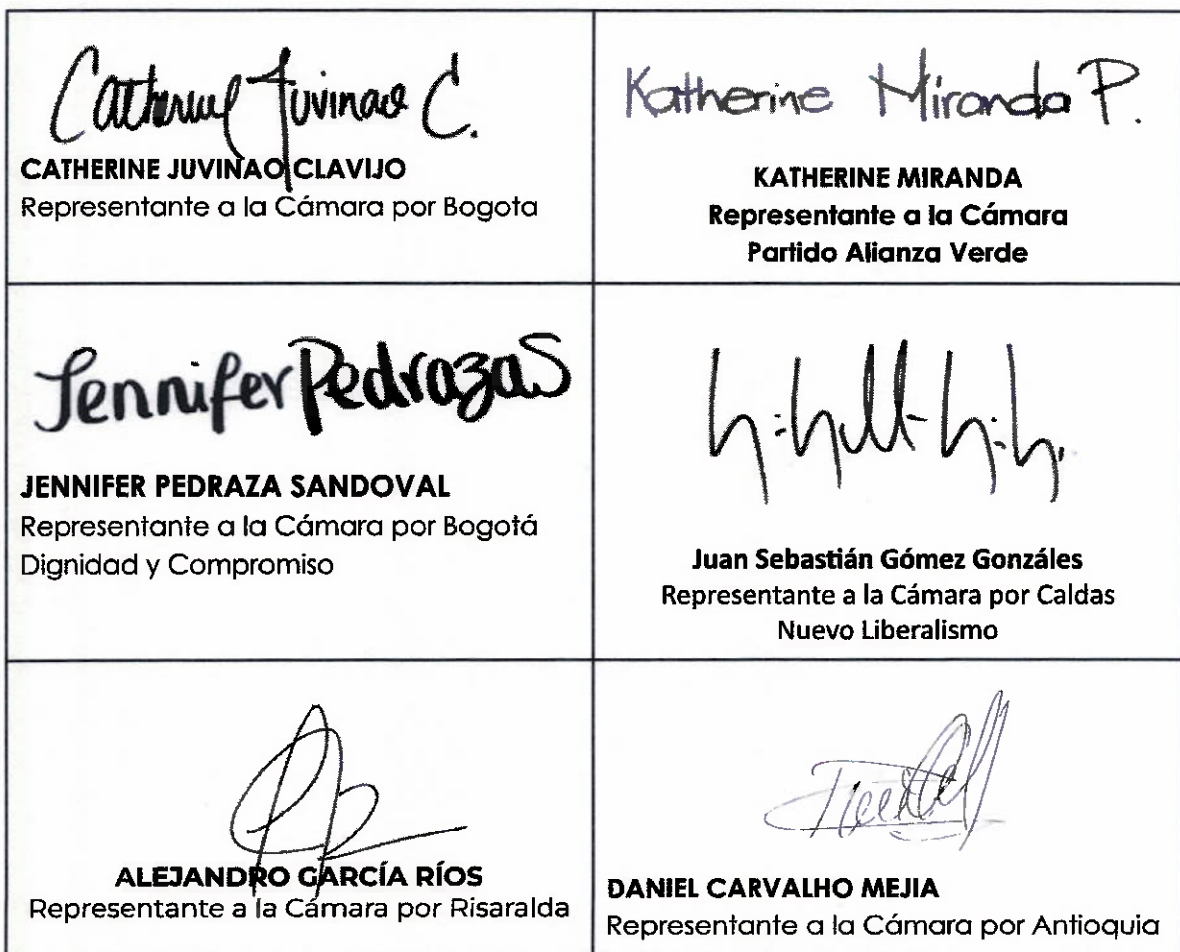 Catherine Juvinao C.
CATHERINE JUVINAO CLAVIJO
Representante a la Cámara por Bogota
Katherine Miranda P.
KATHERINE MIRANDA
Representante a la Cámara
Partido Alianza Verde
Jennifer Pedraza S
JENNIFER PEDRAZA SANDOVAL
Representante a la Cámara por Bogotá
Dignidad y Compromiso
Juan Sebastián Gómez Gonzáles
Representante a la Cámara por Caldas
Nuevo Liberalismo
ALEJANDRO GARCÍA RÍOS
Representante a la Cámara por Risaralda
DANIEL CARVALHO MEJIA
Representante a la Cámara por Antioquia